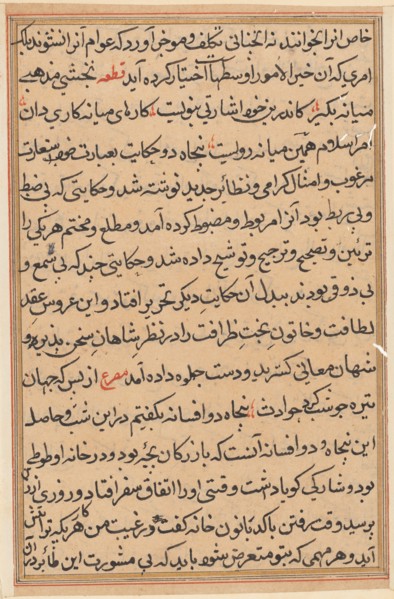 خاص انرا بخوانند نه انچنانی بتکلف و موجز آورد که عوام آنرا نستوند بلک
امری که آن خیر الامور اوسطها اختیار کرده آید قطعه نخشبی مذهبی
میانه بگیر کاندرین خود اشارتی نبویست کارهای میانه کاری دان
همین میانه رویست پنجاه دو حکایت بعبارت خوب و استعارت
مرغوب و امثال کرامی و نظائر جدید نوشته شد و حکایتی که بی ضبط
و بی ربط بود آنرا مربوط و مضبوط کرده آمد و مطلع و مختم هر یکی را
تزئین و تصحیح و ترجیح و توشیح داده شد و حکایتی چند که بی سمع و
بی ذوق بودند ببدل آن حکایت دیکر تحریر افتاد و این عروس عقد
لطافت و خاتون تخت ظرافت را در نظر شاهان سخن پذیر و
شهان معانی کستر بدو دست جلوه داده آمد مصرع از بس که جهان
تیره حوادث پنجاه دو افسانه بکفتیم در این شب و حاصله
این پنجاه و دو افسانه آنست که بازرکان بچه بود و در خانه او طوطی
بود و شارکی کویا داشت وقتی او را اتفاق سفر افتاد و روزی
وقت رفتن با کدبانون خانه کفت من هر یکه ترا پیش
آید و هر مهمی که بتو متعرض شود باید که بی مشورت این طائر در آن